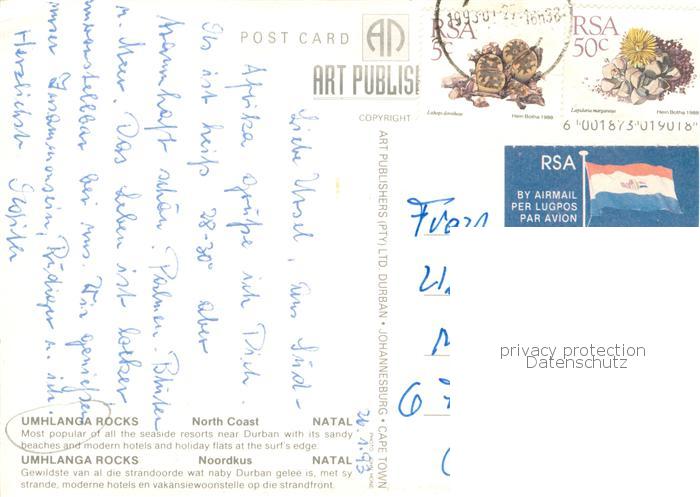 POST CARD
AD
ART PUBLIS
COPYRIGHT
1993-01-27-16h38
RSA
5c
Hein Botha 1988
RSA
50c
Hein Botha 1988
6 001873 019018
RSA
BY AIRMAIL
PER LUGPOS
PAR AVION
ART PUBLISHERS (PTY) LTD. DURBAN • JOHANNESBURG • CAPE TOWN
Liebe Ursel, aus Süd-
Afrika grüße ich Dich.
Es ist heiß 28-30° aber
traumhaft schön. Palmen. Blüten
u. Meer. Das Leben ist locker
unvorstellbar bei uns. Wir genießen
unser Zusammensein, Rüdiger u. ich.
Herzlichst
26.1.93
Frau
privacy protection
Datenschutz
UMHLANGA ROCKS North Coast NATAL
Most popular of all the seaside resorts near Durban with its sandy
beaches and modern hotels and holiday flats at the surf's edge.
UMHLANGA ROCKS Noordkus NATAL
Gewildste van al die strandoorde wat naby Durban gelee is, met sy
strande, moderne hotels en vakansiewoonstelle op die strandfront.